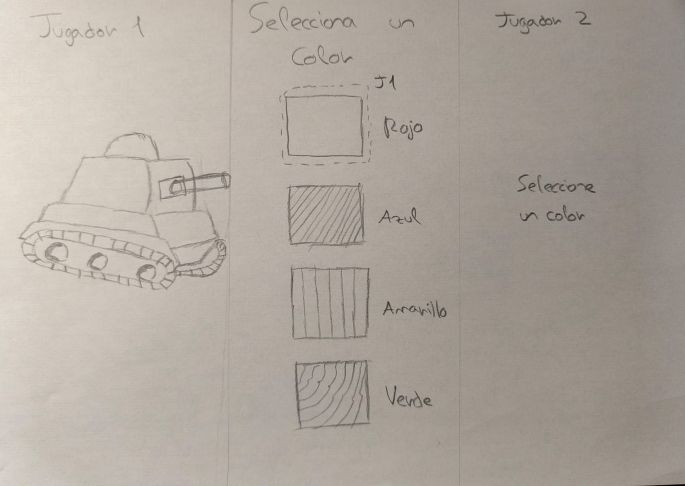 Jugador 1
Selecciona un
Color
J1
Rojo
Azul
Amarillo
Verde
Jugador 2
Seleccione
un color